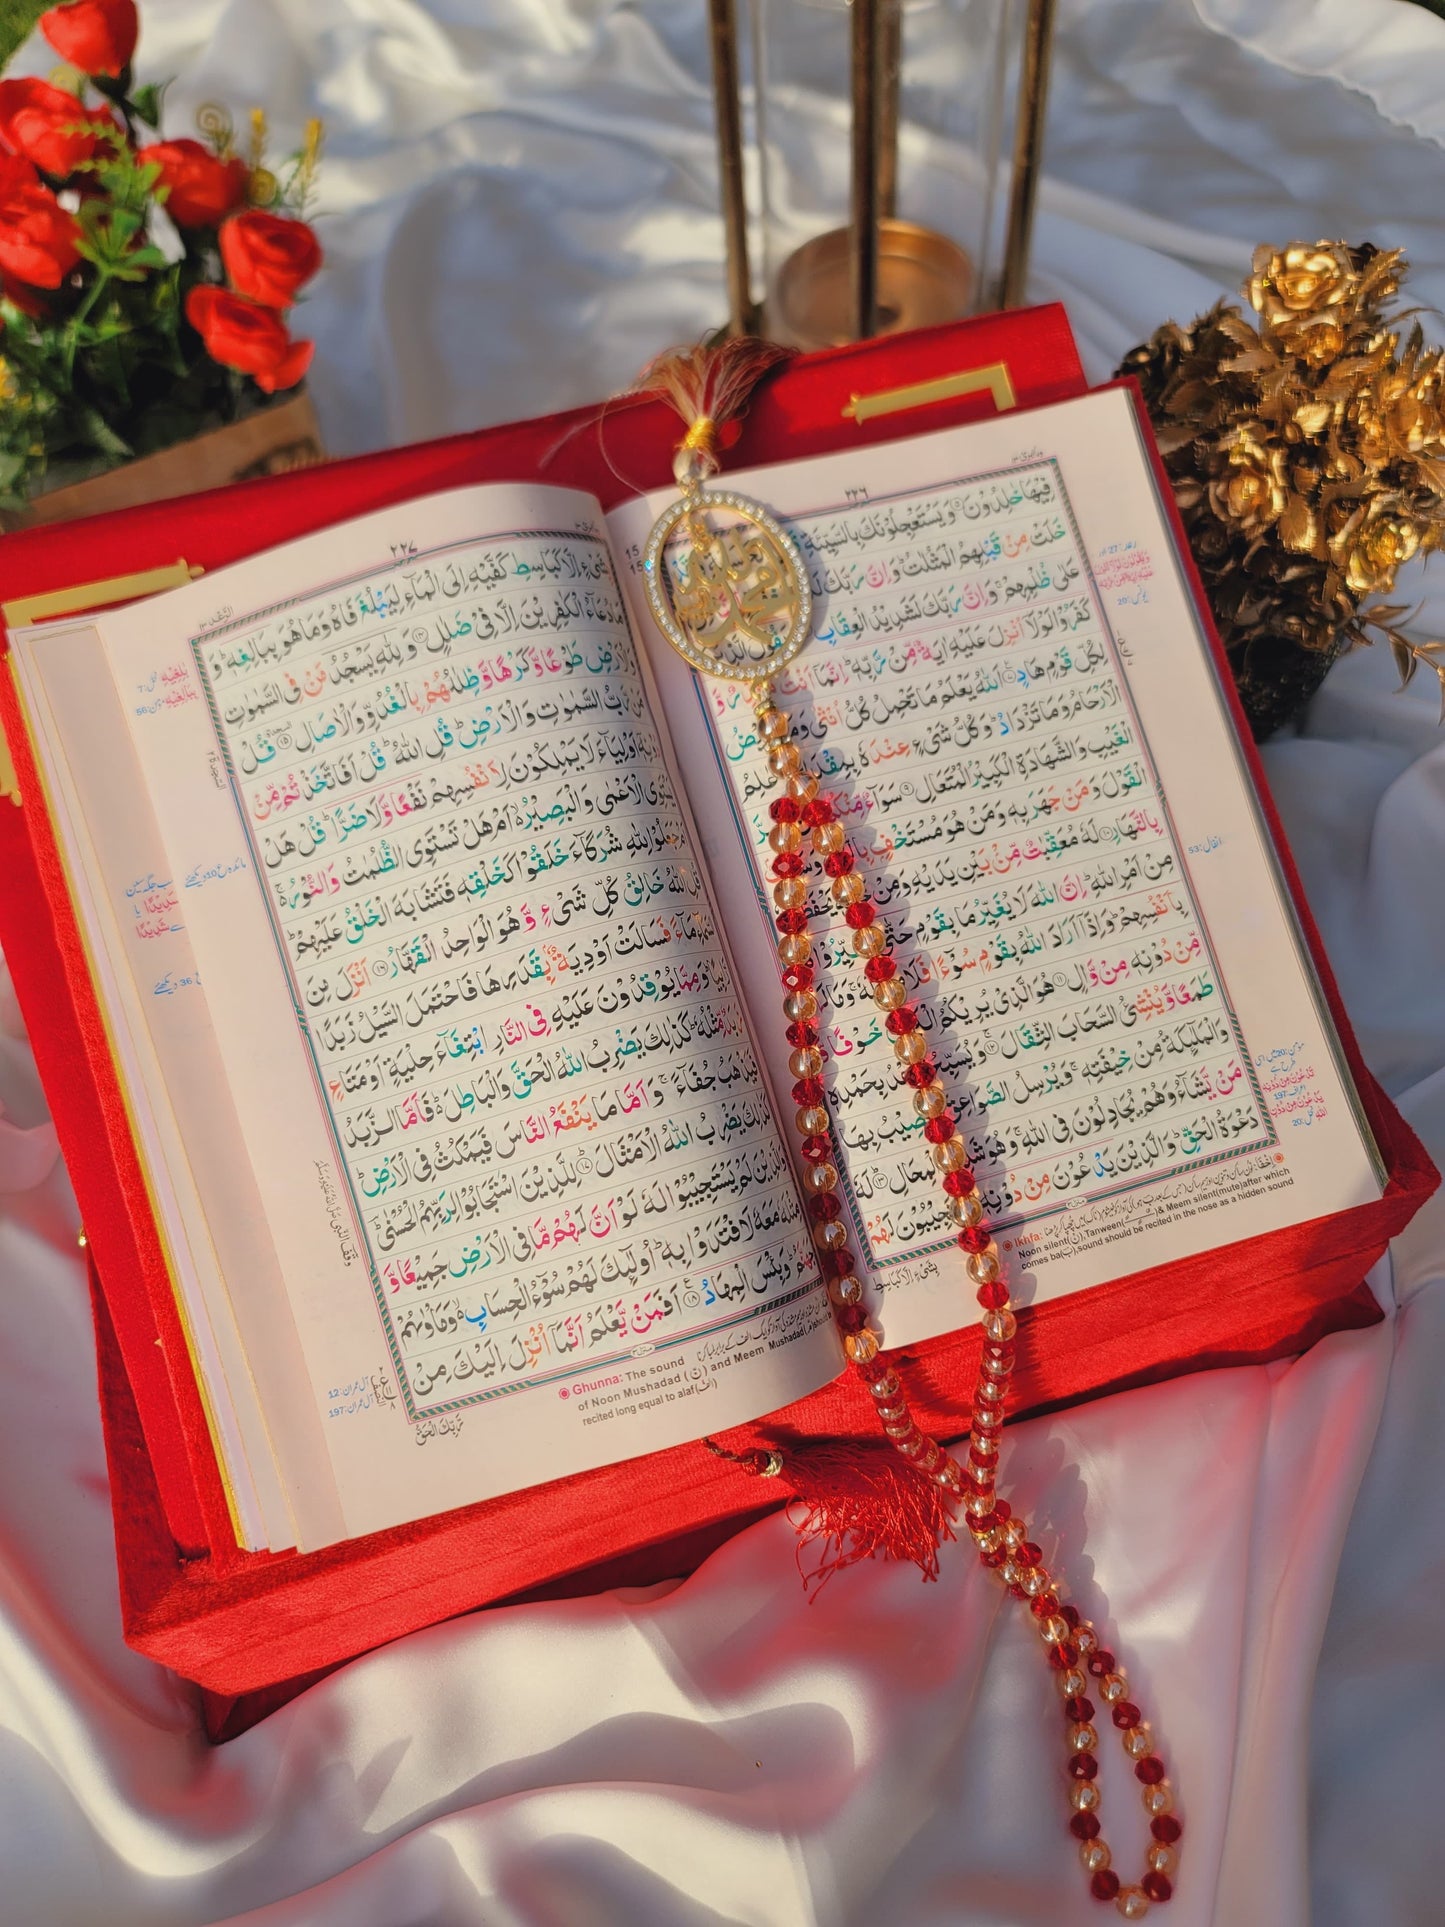 ٢٢٦
فِيْهَا خٰلِدُوْنَ ۝٥ وَيَسْتَعْجِلُوْنَكَ بِالسَّيِّئَةِ
خَلَتْ مِنْ قَبْلِهِمُ الْمَثُلٰتُ ؕ وَاِنَّ رَبَّكَ
عَلٰى ظُلْمِهِمْ ۚ وَاِنَّ رَبَّكَ لَشَدِيْدُ الْعِقَابِ
كَفَرُوْا لَوْلَاۤ اُنْزِلَ عَلَيْهِ اٰيَةٌ مِّنْ رَّبِّهٖ ؕ اِنَّمَاۤ اَنْتَ
لِكُلِّ قَوْمٍ هَادٍ ۝٧ اَللّٰهُ يَعْلَمُ مَا تَحْمِلُ كُلُّ اُنْثٰى وَمَا
الْاَرْحَامُ وَمَا تَزْدَادُ ؕ وَكُلُّ شَىْءٍ عِنْدَهٗ بِمِقْدَارٍ
الْغَيْبِ وَالشَّهَادَةِ الْكَبِيْرُ الْمُتَعَالِ ۝٩ سَوَآءٌ مِّنْكُمْ
الْقَوْلَ وَمَنْ جَهَرَ بِهٖ وَمَنْ هُوَ مُسْتَخْفٍۭ بِالَّيْلِ
بِالنَّهَارِ ۝١٠ لَهٗ مُعَقِّبٰتٌ مِّنْۢ بَيْنِ يَدَيْهِ وَمِنْ
مِنْ اَمْرِ اللّٰهِ ؕ اِنَّ اللّٰهَ لَا يُغَيِّرُ مَا بِقَوْمٍ حَتّٰى
بِاَنْفُسِهِمْ ؕ وَاِذَاۤ اَرَادَ اللّٰهُ بِقَوْمٍ سُوْٓءًا فَلَا
مِّنْ دُوْنِهٖ مِنْ وَّالٍ ۝١١ هُوَ الَّذِىْ يُرِيْكُمُ الْبَرْقَ خَوْفًا
طَمَعًا وَّيُنْشِئُ السَّحَابَ الثِّقَالَ ۝١٢ وَيُسَبِّحُ الرَّعْدُ بِحَمْدِهٖ
وَالْمَلٰٓئِكَةُ مِنْ خِيْفَتِهٖ ۚ وَيُرْسِلُ الصَّوَاعِقَ فَيُصِيْبُ بِهَا
مَنْ يَّشَآءُ وَهُمْ يُجَادِلُوْنَ فِى اللّٰهِ ۚ وَهُوَ شَدِيْدُ الْمِحَالِ ۝١٣ لَهٗ
دَعْوَةُ الْحَقِّ ؕ وَالَّذِيْنَ يَدْعُوْنَ مِنْ دُوْنِهٖ لَا يَسْتَجِيْبُوْنَ لَهُمْ
بِشَىْءٍ اِلَّا كَبَاسِطِ
Ikhfa:
Noon silent(نْ),Tanween & Meem silent(mute)after which
comes ba(ب),sound should be recited in the nose as a hidden sound
٢٢٧
بِشَىْءٍ اِلَّا كَبَاسِطِ كَفَّيْهِ اِلَى الْمَآءِ لِيَبْلُغَ فَاهُ وَمَا هُوَ بِبَالِغِهٖ ؕ وَ
مَا دُعَآءُ الْكٰفِرِيْنَ اِلَّا فِىْ ضَلٰلٍ ۝١٤ وَلِلّٰهِ يَسْجُدُ مَنْ فِى السَّمٰوٰتِ
وَالْاَرْضِ طَوْعًا وَّكَرْهًا وَّظِلٰلُهُمْ بِالْغُدُوِّ وَالْاٰصَالِ ۝١٥ قُلْ
مَنْ رَّبُّ السَّمٰوٰتِ وَالْاَرْضِ ؕ قُلِ اللّٰهُ ؕ قُلْ اَفَاتَّخَذْتُمْ مِّنْ
دُوْنِهٖۤ اَوْلِيَآءَ لَا يَمْلِكُوْنَ لِاَنْفُسِهِمْ نَفْعًا وَّلَا ضَرًّا ؕ قُلْ هَلْ
يَسْتَوِى الْاَعْمٰى وَالْبَصِيْرُ ۙ اَمْ هَلْ تَسْتَوِى الظُّلُمٰتُ وَالنُّوْرُ ۚ
اَمْ جَعَلُوْا لِلّٰهِ شُرَكَآءَ خَلَقُوْا كَخَلْقِهٖ فَتَشَابَهَ الْخَلْقُ عَلَيْهِمْ ؕ
قُلِ اللّٰهُ خَالِقُ كُلِّ شَىْءٍ وَّهُوَ الْوَاحِدُ الْقَهَّارُ ۝١٦ اَنْزَلَ مِنَ
السَّمَآءِ مَآءً فَسَالَتْ اَوْدِيَةٌۢ بِقَدَرِهَا فَاحْتَمَلَ السَّيْلُ زَبَدًا
رَّابِيًا ؕ وَمِمَّا يُوْقِدُوْنَ عَلَيْهِ فِى النَّارِ ابْتِغَآءَ حِلْيَةٍ اَوْ مَتَاعٍ
زَبَدٌ مِّثْلُهٗ ؕ كَذٰلِكَ يَضْرِبُ اللّٰهُ الْحَقَّ وَالْبَاطِلَ ۬ؕ فَاَمَّا الزَّبَدُ
فَيَذْهَبُ جُفَآءً ۚ وَاَمَّا مَا يَنْفَعُ النَّاسَ فَيَمْكُثُ فِى الْاَرْضِ ؕ
كَذٰلِكَ يَضْرِبُ اللّٰهُ الْاَمْثَالَ ۝١٧ لِلَّذِيْنَ اسْتَجَابُوْا لِرَبِّهِمُ الْحُسْنٰى ؕ
وَالَّذِيْنَ لَمْ يَسْتَجِيْبُوْا لَهٗ لَوْ اَنَّ لَهُمْ مَّا فِى الْاَرْضِ جَمِيْعًا وَّ
مِثْلَهٗ مَعَهٗ لَافْتَدَوْا بِهٖ ؕ اُولٰٓئِكَ لَهُمْ سُوْٓءُ الْحِسَابِ ۙ وَمَاْوٰىهُمْ
جَهَنَّمُ ؕ وَبِئْسَ الْمِهَادُ ۝١٨ اَفَمَنْ يَّعْلَمُ اَنَّمَاۤ اُنْزِلَ اِلَيْكَ مِنْ
رَّبِّكَ الْحَقُّ
Ghunna: The sound
of Noon Mushadad (نّ) and Meem Mushadad(مّ)should b
recited long equal to alaf(الف)